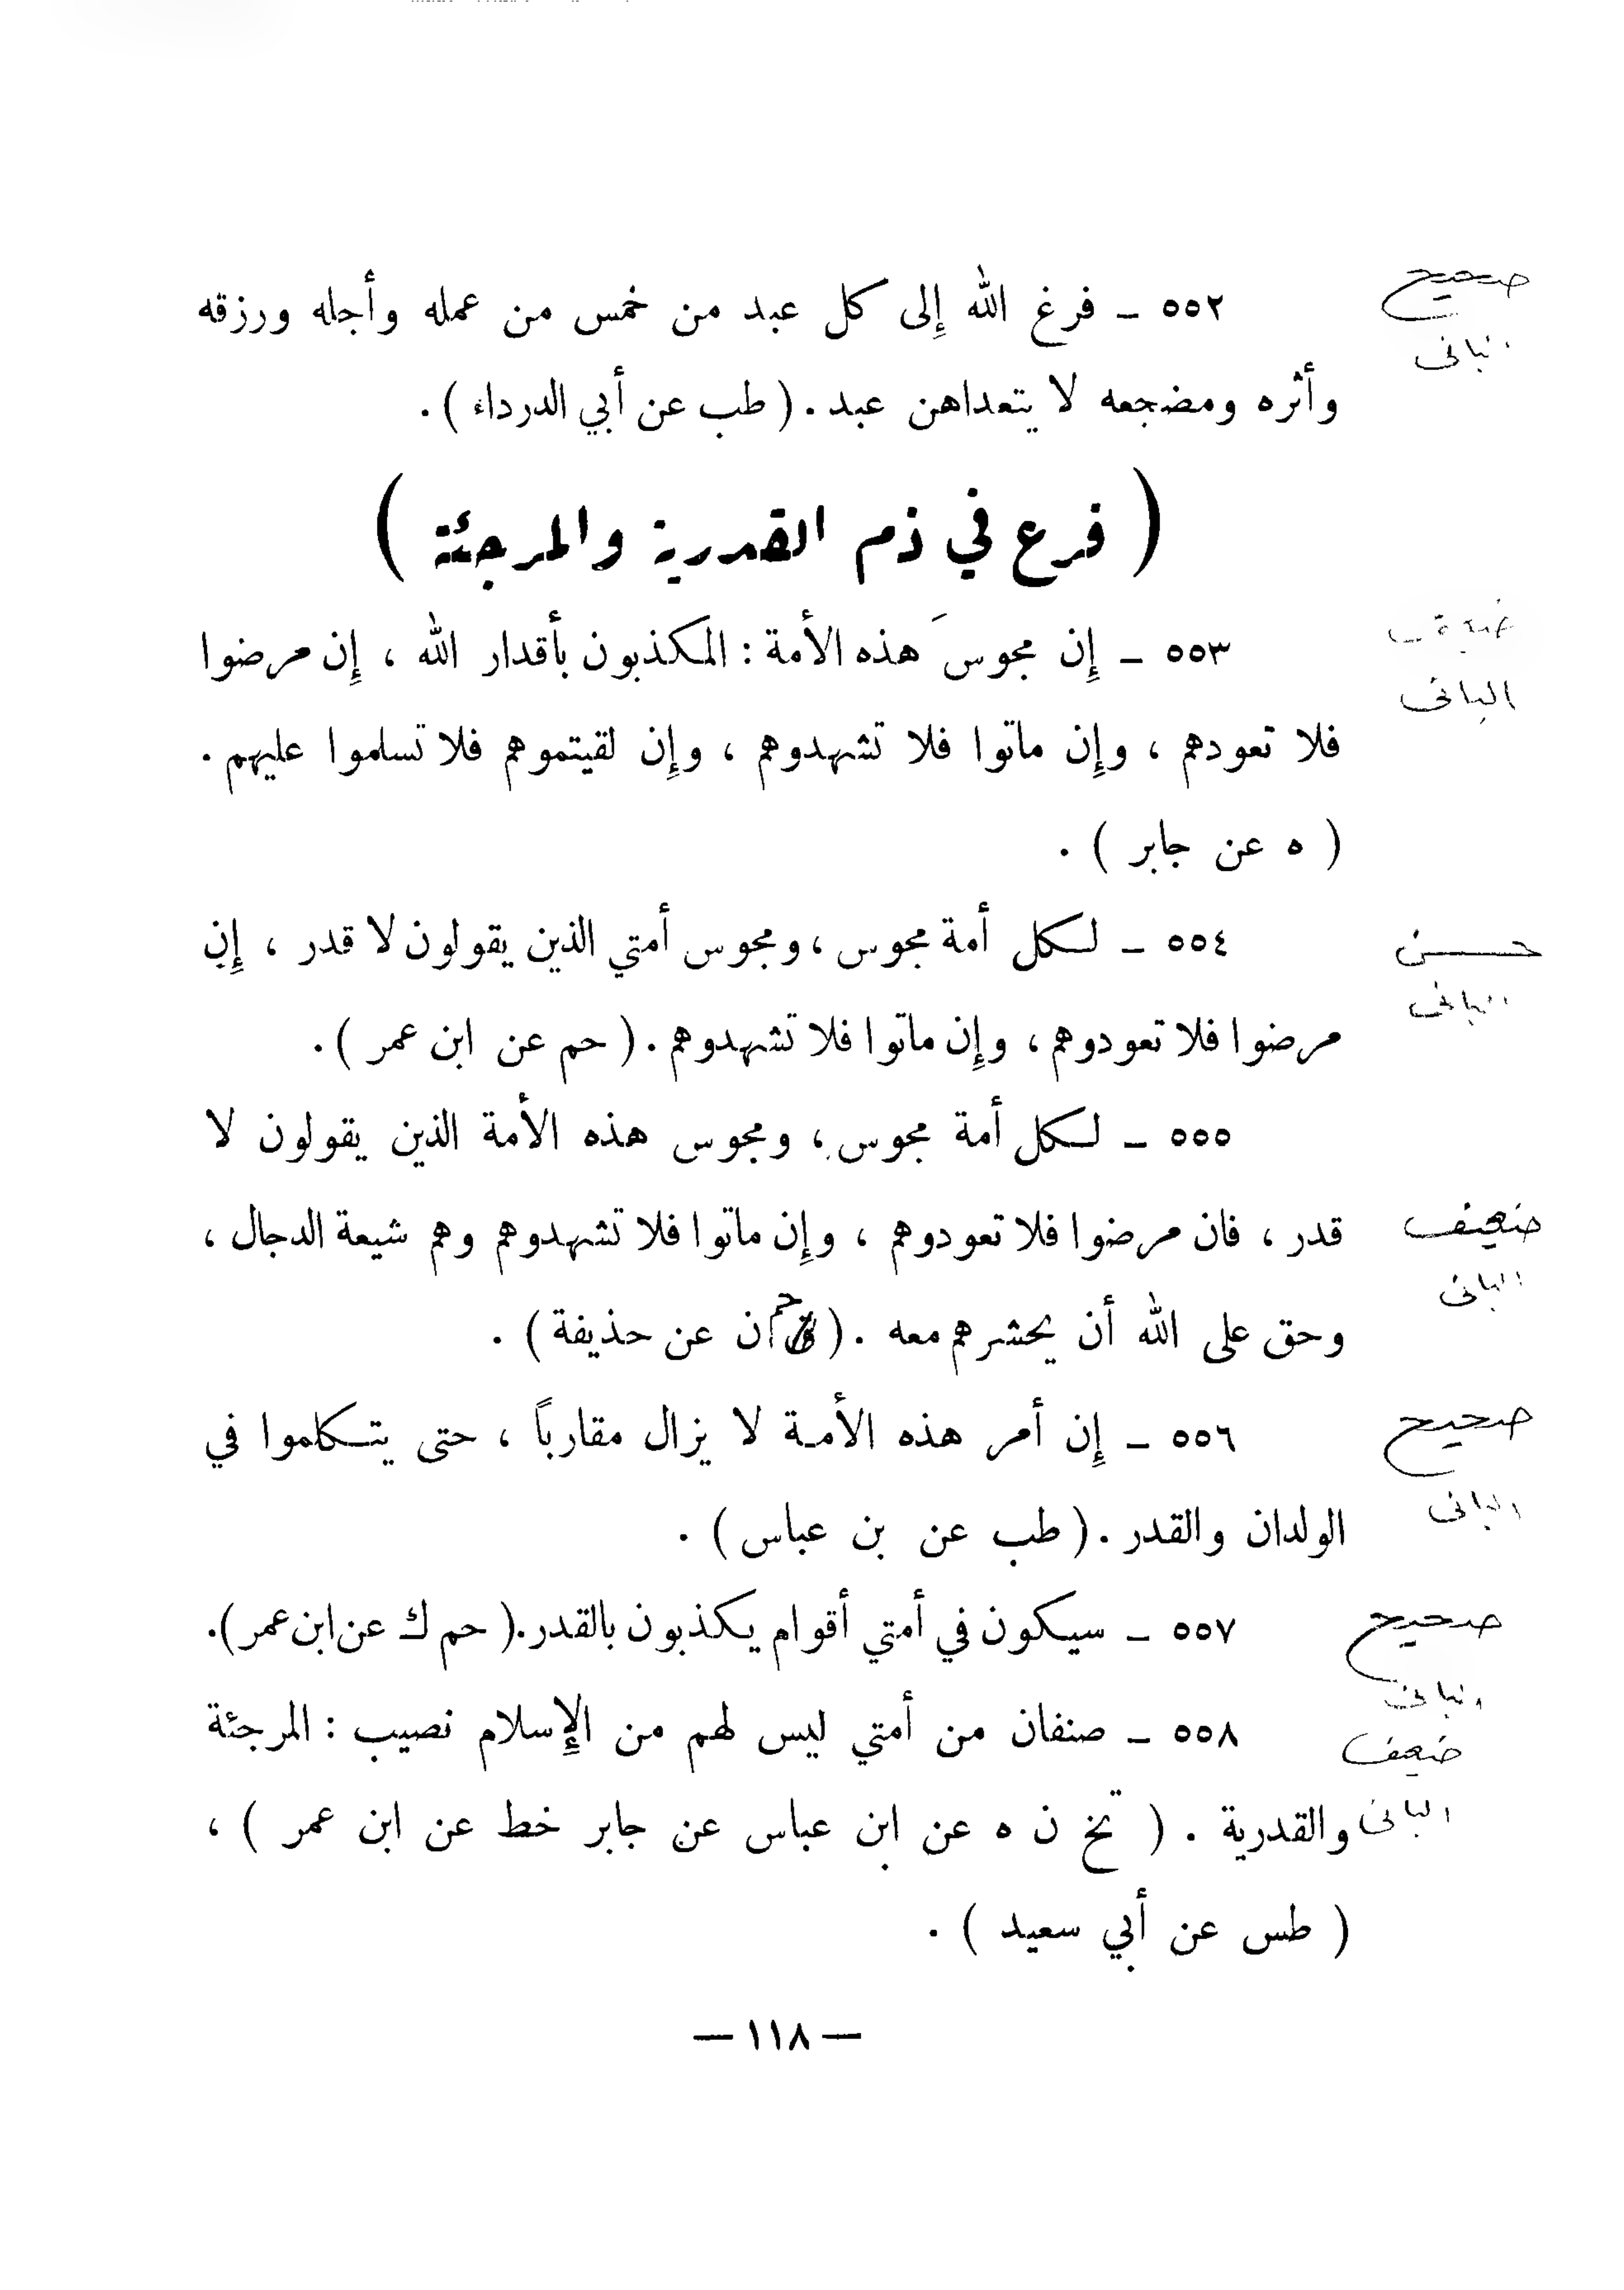 صحيح
٥٥٢ – فرغ الله إلى كل عبد من خمس من عمله وأجله ورزقه
وأثره ومضجعه لا يتعداهن عبد . ( طب عن أبي الدرداء ) .
( فرع في ذم القدرية والمرجئة )
٥٥٣ – إِن مجوسَ هذه الأمة : المكذبون بأقدار الله ، إِن مرضوا
الباني
فلا تعودهم ، وإِن ماتوا فلا تشهدوهم ، وإِن لقيتموهم فلا تسلموا عليهم .
( ه عن جابر ) .
حسن
٥٥٤ – لكل أمة مجوس ، ومجوس أمتي الذين يقولون لا قدر ، إِن
الباني
مرضوا فلا تعودوهم ، وإِن ماتوا فلا تشهدوهم . ( حم عن ابن عمر ) .
٥٥٥ – لكل أمة مجوس ، ومجوس هذه الأمة الذين يقولون لا
ضعيف
قدر ، فان مرضوا فلا تعودوهم ، وإِن ماتوا فلا تشهدوهم وهم شيعة الدجال ،
الباني
وحق على الله أن يحشرهم معه . ( حم ن عن حذيفة ) .
صحيح
٥٥٦ – إِن أمر هذه الأمة لا يزال مقارباً ، حتى يتكلموا في
الباني
الولدان والقدر . ( طب عن بن عباس ) .
صحيح
٥٥٧ – سيكون في أمتي أقوام يكذبون بالقدر . ( حم ك عن ابن عمر ) .
الباني
ضعيف
٥٥٨ – صنفان من أمتي ليس لهم من الإِسلام نصيب : المرجئة
الباني
والقدرية . ( تخ ن ه عن ابن عباس عن جابر خط عن ابن عمر ) ،
( طس عن أبي سعيد ) .
— ١١٨ —